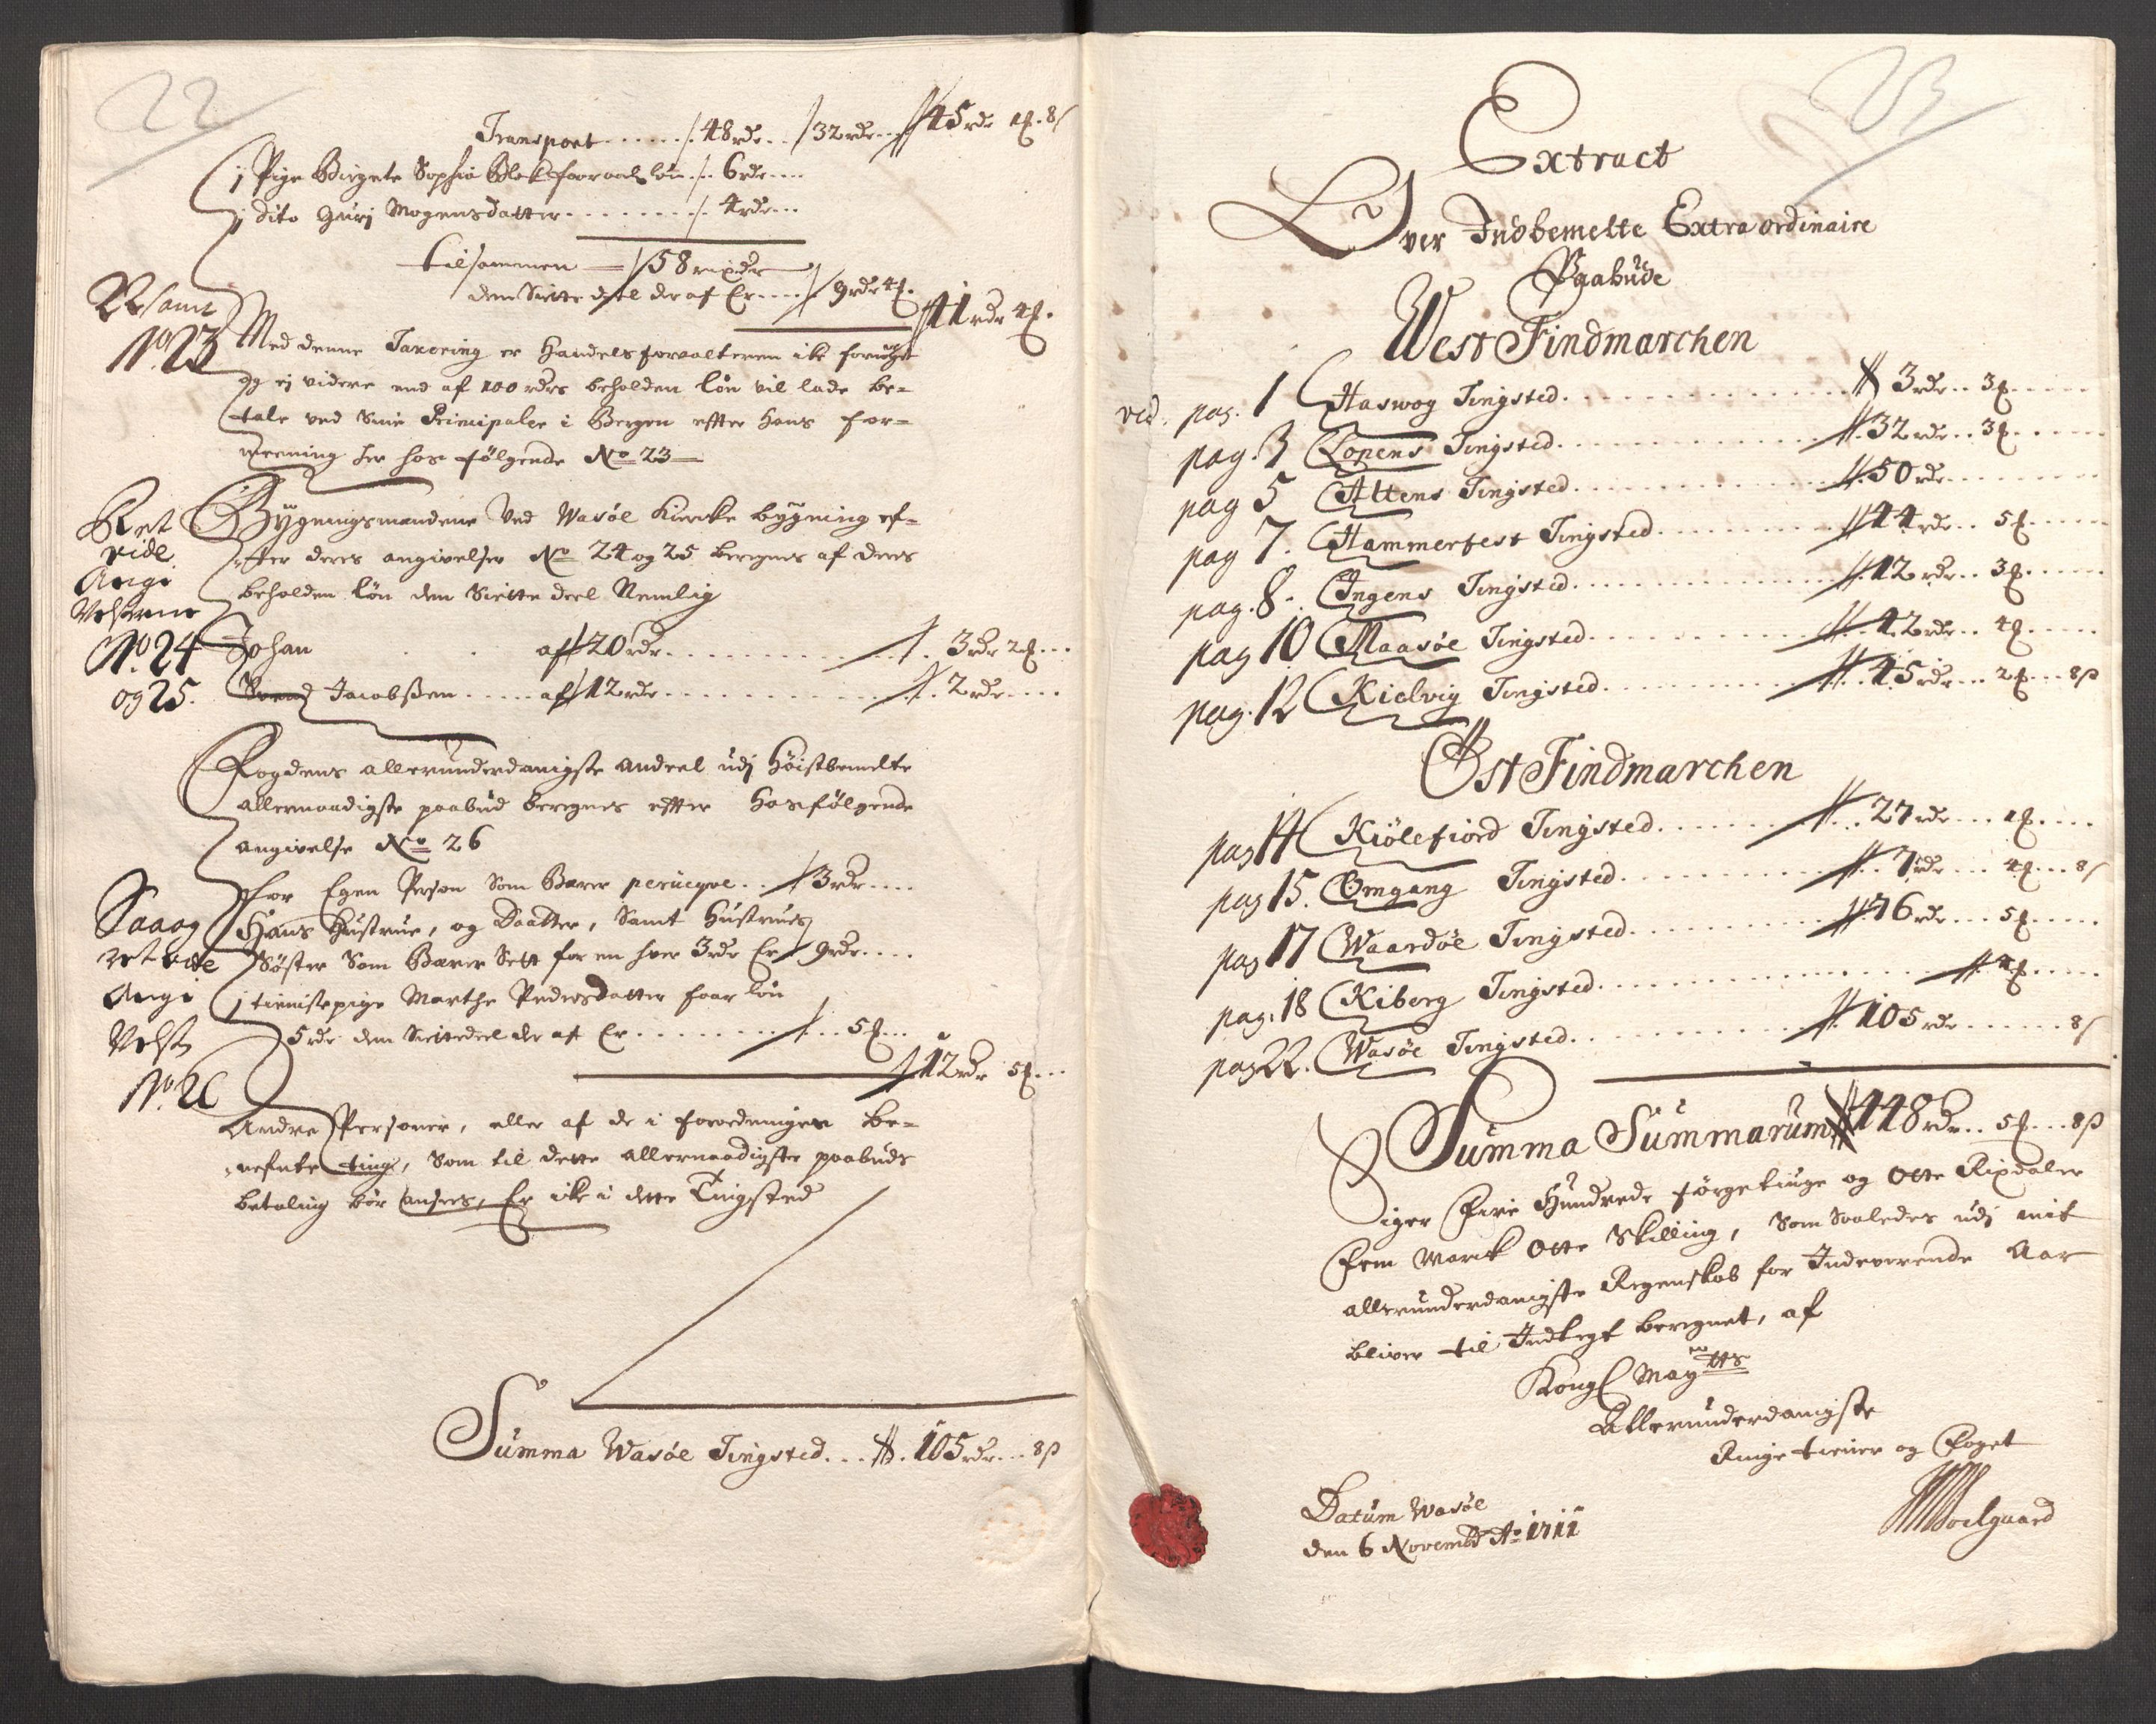 22
Transport . . . . . . 48 rdr . . 32 rdr . . 45 rdr 1 ℳ. 8 ß
j Pige Birgete Sophia Blok faar aarl. løn . . 6 rdr . . .
j dito Guri Mogensdatter . . . . . . . 4 rdr . . .
tilsammen — 58 rixdr
dend Siette deel der af Er . . . . 9 rdr 4 ℳ.
41 rdr 4 ℳ.
22 samt
No. 23
Med denne Taxering er Handels forvalteren ike fornøyet
og ej videre end af 100 rdrs beholden løn vil lade be-
tale ved Sine Principaler i Bergen effter hans for-
meening her hos følgende No 23 —
Ret
vide
Angi
Velserne
No. 24
og 25.
Bygningsmændene Ved Wasöe Kierke bygning ef-
ter deres angivelser No 24 og 25 beregnes af deres
beholden løn den Siette deel Nemlig
Johan . . af 20 rdr . . . . . . . . . . 3 rdr 2 ℳ . . .
Svend Jacobßen . . . . af 12 rdr . . . . . . . . . . 2 rdr . . . .
Fogdens allerunderdanigste andeel udj Höistbemelte
allernaadigste paabud beregnes effter hosfölgende
angivelse No 26
Saa og
ret vide
Angi
Velse
No. 26
for Egen Person Som Bærer peruqve . . 3 rdr . . . .
Hans Hustrue, og Daatter, Samt Hustrues
Söster Som Bærer Sett for en hver 3 rdr Er 9 rdr . . . .
j tienistepige Marthe Pedersdatter faar løn
5 rdr dend Siettedeel der af Er . . . . . . . . . 5 ℳ . . .
12 rdr 5 ℳ . . .
Andre Personer, eller af de i forordningen be-
nefnte ting, Som til dette allernaadigste paabuds
betaling bör ansees, Er ike i dette Tingsted
Summa Wasöe Tingsted . . . 105 rdr . . . 8 ß
23
Extract
Over Indbemelte Extra ordinaire
Paabude
West Findmarchen
vid. pag. 1 Haswog Tingsted . . . . . . . . . . . . . 3 rdr . . 3 ℳ . . . . .
pag. 3 Loppens Tingsted . . . . . . . . . . . . . 32 rdr . . 3 ℳ . . . . .
pag 5 Altens Tingsted . . . . . . . . . . . . . 50 rdr . . . . . . . .
pag 7. Hammerfest Tingsted . . . . . . . . . . 44 rdr . . 5 ℳ . . . . .
pag. 8. Ingens Tingsted . . . . . . . . . . . . . 12 rdr . . 3 ℳ . . . . .
pag 10 Maasöe Tingsted . . . . . . . . . . . . . 42 rdr . . 4 ℳ . . . . .
pag. 12 Kielvig Tingsted . . . . . . . . . . . . . 45 rdr . . 2 ℳ . . . 8 ß
Öst Findmarchen
pag 14 Kiölefiord Tingsted . . . . . . . . . . 27 rdr . . . 1 ℳ . . . .
pag 15. Omgang Tingsted . . . . . . . . . . . 7 rdr . . . 4 ℳ . . . 8 ß
pag 17 Waardöe Tingsted . . . . . . . . . . . 76 rdr . . . 5 ℳ . . . . .
pag. 18 Kiberg Tingsted . . . . . . . . . . . . . . . . . . 4 ℳ . . . . .
pag 22. Wasöe Tingsted . . . . . . . . . . . . . 105 rdr . . . . . . 8 ß
Summa Summarum 448 rdr . . 5 ℳ . . . 8 ß
Siger Fire Hundrede förgetiuge og Otte Rixdaler
Fem Marck Otte Skilling, Som Saaledes udj mit
allerunderdanigste Regenskab for Indeværende Aar
bliver til Indtegt beregnet, af
Kongl Maytts
Allerunderdanigste
Ringe tiener og Foget
Datum Wasöe
den 6 Novembr Ao 1711